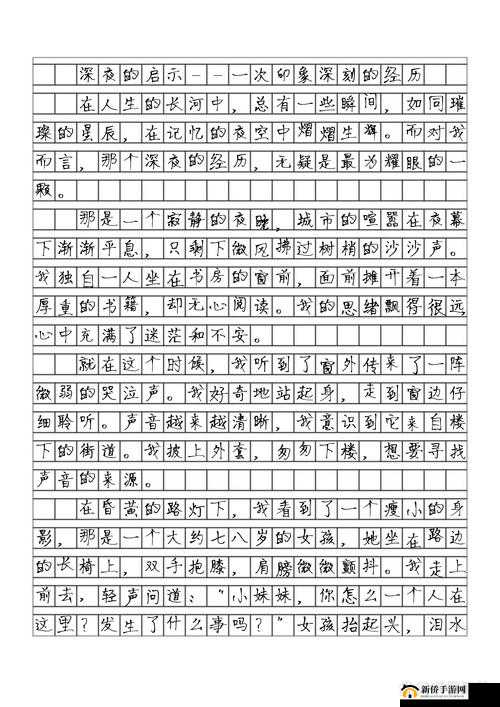 深夜的启示--一次印象深刻的经历
在人生的长河中，总有一些瞬间，如同璀
璨的星辰，在记忆的夜空中熠熠生辉。而对我
而言，那个深夜的经历，无疑是最为耀眼的一
颗。
那是一个寂静的夜晚，城市的喧嚣在夜幕
下渐渐平息，只剩下微风拂过树梢的沙沙声。
我独自一人坐在书房的窗前，面前摊开着一本
厚重的书籍，却无心阅读。我的思绪飘得很远
心中充满了迷茫和不安。
就在这个时候，我听到了窗外传来了一阵
微弱的哭泣声。我好奇地站起身，走到窗边仔
细聆听。声音越来越清晰，我意识到它来自楼
下的街道。我披上外套，匆匆下楼，想要寻找
声音的来源。
在昏黄的路灯下，我看到了一个瘦小的身
影，那是一个大约七八岁的女孩，她坐在路边
的长椅上，双手抱膝，肩膀微微颤抖。我走上
前去，轻声问道：“小妹妹，你怎么一个人在
这里？发生了什么事吗？”女孩抬起头，泪水
新侨手游网